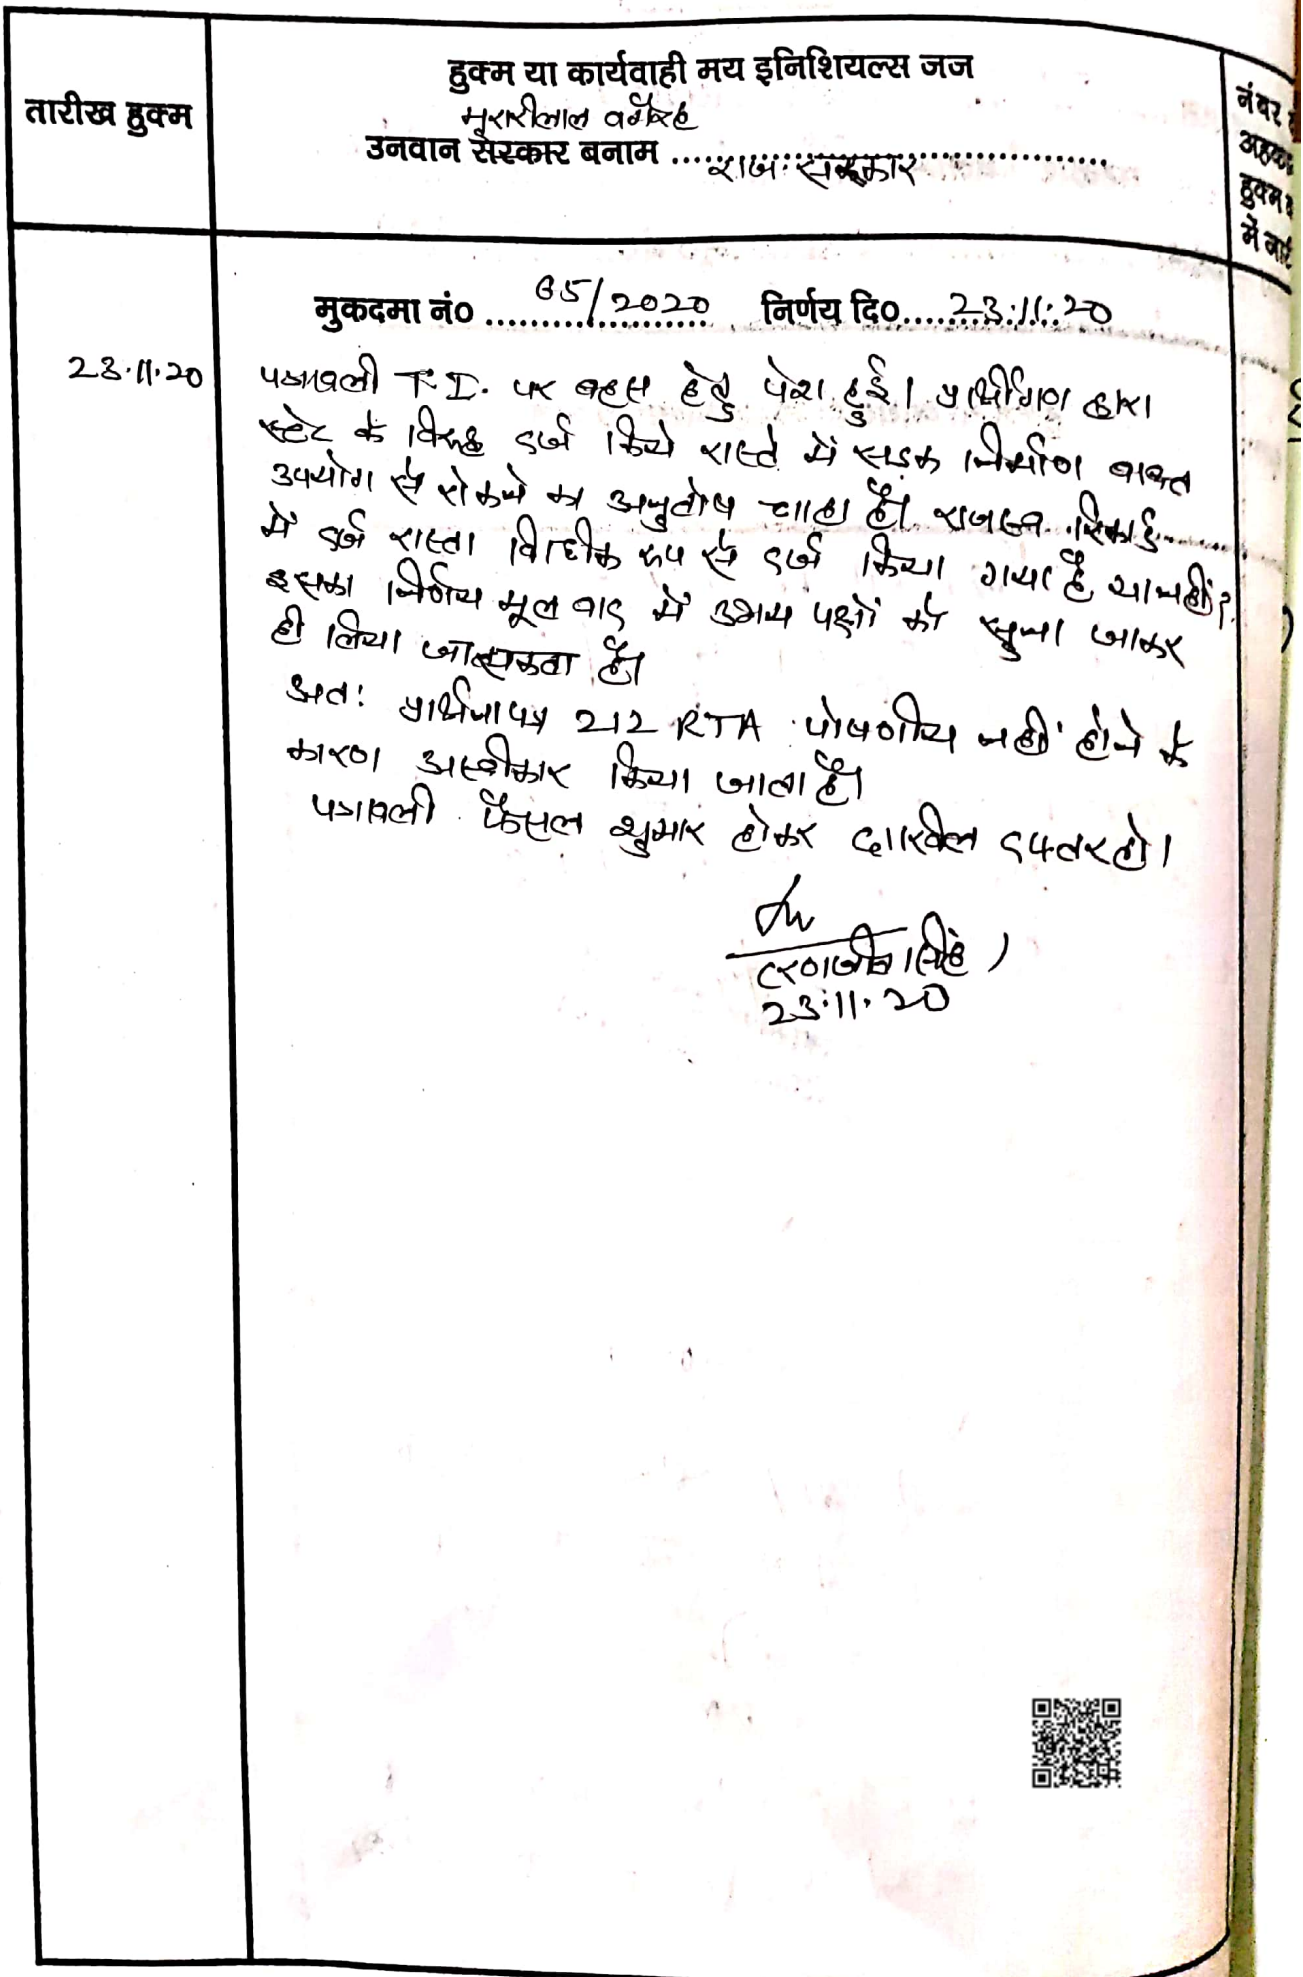 हुक्म या कार्यवाही मय इनिशियल्स जज
तारीख हुक्म
मुरारीलाल वगैरह
उनवान सरकार बनाम
राज. सरकार
नंबर
अहका
हुक्म
में जारी
मुकदमा नं० 65/2020 निर्णय दि० 23.11.20
23.11.20
पत्रावली T.I. पर बहस हेतु पेश हुई। प्रार्थीगण द्वारा
स्टेट के विरूद्ध दर्ज किये रास्ते में सडक निर्माण बाबत
उपयोग से रोकने का अनुतोष चाहा है। राजस्व रिकार्ड
में दर्ज रास्ता विधिक रूप से दर्ज किया गया है या नहीं?
इसका निर्णय मूल वाद में उभय पक्षों को सुना जाकर
ही लिया जा सकता है।
अत: प्रार्थनापत्र 212 RTA पोषणीय नहीं होने के
कारण अस्वीकार किया जाता है।
पत्रावली फैसल शुमार होकर दाखिल दफ्तर हो।
(रणजीत सिंह)
23.11.20